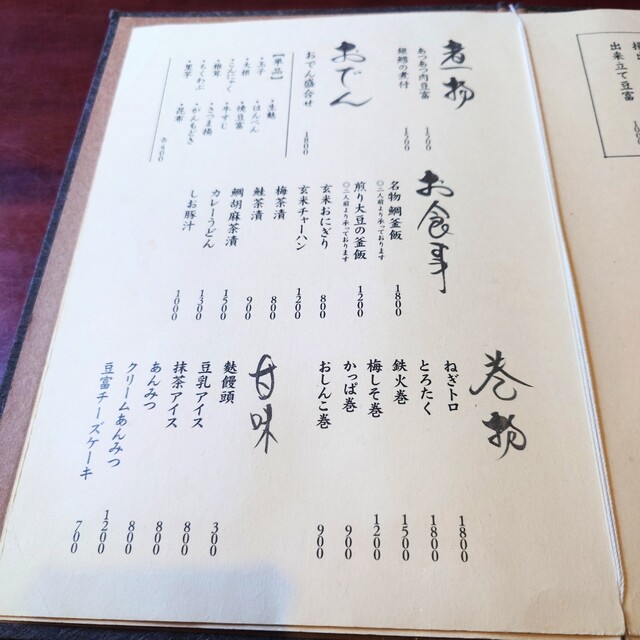 出来立て豆富
煮物
あつあつ肉豆富 1500
銀鱈の煮付 1500
おでん
おでん盛合せ 1800
【単品】
・玉子 ・生麩
・大根 ・はんぺん
・こんにゃく ・焼豆富
・椎茸 ・牛すじ
・ちくわぶ ・さつま揚
・里芋 ・がんもどき
・昆布
お食事
名物 鯛釜飯 1800
〇二人前より承っております
煎り大豆の釜飯 1200
〇二人前より承っております
玄米おにぎり 800
玄米チャーハン 1200
梅茶漬 800
鮭茶漬 900
鯛胡麻茶漬 1500
カレーうどん 1300
しお豚汁 1000
巻物
ねぎトロ 1800
とろたく 1800
鉄火巻 1500
梅しそ巻 1200
かっぱ巻 900
おしんこ巻 900
甘味
麩饅頭 300
豆乳アイス 800
抹茶アイス 800
あんみつ 800
クリームあんみつ 1200
豆富チーズケーキ 700